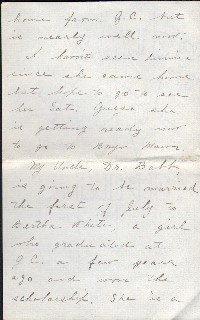 home from G.C. but
is nearly well now.
I haven't seen
since she came home
but hope to go to see
her Sat. Guess she
is getting ready now
to go to Bryn Mawr.
My Uncle, Dr. Babb
is going to be married
the first of July to
Bertha White, a girl
who graduated at
G.C. a few years
ago and won the
scholarship. She is a